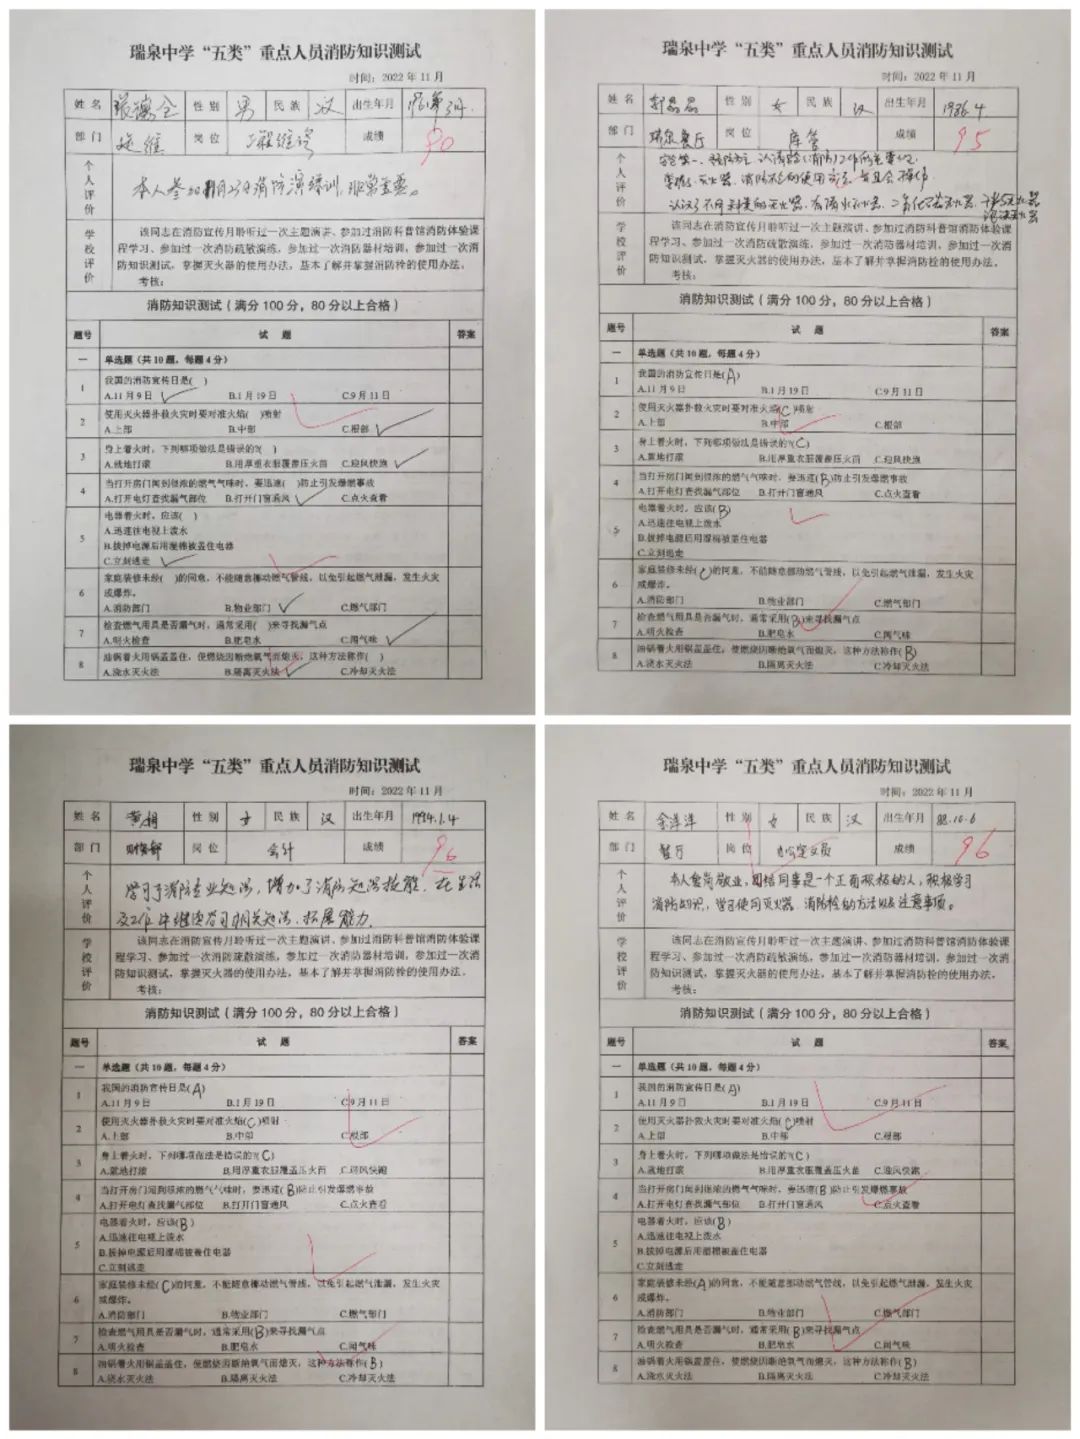 瑞泉中学“五类”重点人员消防知识测试
时间：2022 年 11 月
姓 名 性 别 男 民 族 汉 出生年月
部 门 岗 位 工程维修 成绩 90
个人评价
本人参加
学校评价
该同志在消防宣传月聆听过一次主题演讲、参加过消防科普馆消防体验课
程学习、参加过一次消防疏散演练，参加过一次消防器材培训，参加过一次消
防知识测试，掌握灭火器的使用办法，基本了解并掌握消防栓的使用办法。
考核：
消防知识测试（满分 100 分，80 分以上合格）
题号 试 题 答案
一 单选题（共 10 题，每题 4 分）
1 我国的消防宣传日是( )
A.11 月 9 日 B.1 月 19 日 C.9 月 11 日
2 使用灭火器扑救火灾时要对准火焰( )喷射
A.上部 B.中部 C.根部
3 身上着火时，下列哪项做法是错误的?( )
A.就地打滚 B.用厚重衣服覆盖压火苗 C.迎风快跑
4 当打开房门闻到很浓的燃气气味时，要迅速( )防止引发爆燃事故
A.打开电灯查找漏气部位 B.打开门窗通风 C.点火查看
5 电器着火时，应该( )
A.迅速往电视上泼水
B.拔掉电源后用湿棉被盖住电器
C.立刻逃走
6 家庭装修未经( )的同意，不能随意挪动燃气管线，以免引起燃气泄漏，发生火灾
或爆炸。
A.消防部门 B.物业部门 C.燃气部门
7 检查燃气用具是否漏气时，通常采用( )来寻找漏气点
A.明火检查 B.肥皂水 C.闻气味
8 油锅着火用锅盖盖住，使燃烧因断绝氧气而熄灭，这种方法称作( )
A.浇水灭火法 B.隔离灭火法 C.冷却灭火法
瑞泉中学“五类”重点人员消防知识测试
时间：2022 年 11 月
姓 名 性 别 女 民 族 汉 出生年月 1986.4
部 门 瑞泉餐厅 岗 位 库管 成绩 95
个人评价
学校评价
该同志在消防宣传月聆听过一次主题演讲、参加过消防科普馆消防体验课
程学习、参加过一次消防疏散演练，参加过一次消防器材培训，参加过一次消
防知识测试，掌握灭火器的使用办法，基本了解并掌握消防栓的使用办法。
考核：
消防知识测试（满分 100 分，80 分以上合格）
题号 试 题 答案
一 单选题（共 10 题，每题 4 分）
1 我国的消防宣传日是(A)
A.11 月 9 日 B.1 月 19 日 C.9 月 11 日
2 使用灭火器扑救火灾时要对准火焰(C)喷射
A.上部 B.中部 C.根部
3 身上着火时，下列哪项做法是错误的?(C)
A.就地打滚 B.用厚重衣服覆盖压火苗 C.迎风快跑
4 当打开房门闻到很浓的燃气气味时，要迅速(B)防止引发爆燃事故
A.打开电灯查找漏气部位 B.打开门窗通风 C.点火查看
5 电器着火时，应该(B)
A.迅速往电视上泼水
B.拔掉电源后用湿棉被盖住电器
C.立刻逃走
6 家庭装修未经(C)的同意，不能随意挪动燃气管线，以免引起燃气泄漏，发生火灾
或爆炸。
A.消防部门 B.物业部门 C.燃气部门
7 检查燃气用具是否漏气时，通常采用(B)来寻找漏气点
A.明火检查 B.肥皂水 C.闻气味
8 油锅着火用锅盖盖住，使燃烧因断绝氧气而熄灭，这种方法称作(B)
A.浇水灭火法 B.隔离灭火法 C.冷却灭火法
瑞泉中学“五类”重点人员消防知识测试
时间：2022 年 11 月
姓 名 黄娟 性 别 女 民 族 汉 出生年月 1984.1.4
部 门 财务部 岗 位 会计 成绩 96
个人评价
学习了消防专业知识，增加了消防知识技能，在生活
及工作中继续学习相关知识，拓展能力.
学校评价
该同志在消防宣传月聆听过一次主题演讲、参加过消防科普馆消防体验课
程学习、参加过一次消防疏散演练，参加过一次消防器材培训，参加过一次消
防知识测试，掌握灭火器的使用办法，基本了解并掌握消防栓的使用办法。
考核：
消防知识测试（满分 100 分，80 分以上合格）
题号 试 题 答案
一 单选题（共 10 题，每题 4 分）
1 我国的消防宣传日是(A)
A.11 月 9 日 B.1 月 19 日 C.9 月 11 日
2 使用灭火器扑救火灾时要对准火焰(C)喷射
A.上部 B.中部 C.根部
3 身上着火时，下列哪项做法是错误的?(C)
A.就地打滚 B.用厚重衣服覆盖压火苗 C.迎风快跑
4 当打开房门闻到很浓的燃气气味时，要迅速(B)防止引发爆燃事故
A.打开电灯查找漏气部位 B.打开门窗通风 C.点火查看
5 电器着火时，应该(B)
A.迅速往电视上泼水
B.拔掉电源后用湿棉被盖住电器
C.立刻逃走
6 家庭装修未经(C)的同意，不能随意挪动燃气管线，以免引起燃气泄漏，发生火灾
或爆炸。
A.消防部门 B.物业部门 C.燃气部门
7 检查燃气用具是否漏气时，通常采用(B)来寻找漏气点
A.明火检查 B.肥皂水 C.闻气味
8 油锅着火用锅盖盖住，使燃烧因断绝氧气而熄灭，这种方法称作(B)
A.浇水灭火法 B.隔离灭火法 C.冷却灭火法
瑞泉中学“五类”重点人员消防知识测试
时间：2022 年 11 月
姓 名 余洋洋 性 别 女 民 族 汉 出生年月 88.10.6
部 门 餐厅 岗 位 办公室文员 成绩 96
个人评价
本人爱岗敬业，团结同事是一个正面积极的人，积极学习
消防知识，学习使用灭火器，消防栓的方法以及注意事项。
学校评价
该同志在消防宣传月聆听过一次主题演讲、参加过消防科普馆消防体验课
程学习、参加过一次消防疏散演练，参加过一次消防器材培训，参加过一次消
防知识测试，掌握灭火器的使用办法，基本了解并掌握消防栓的使用办法。
考核：
消防知识测试（满分 100 分，80 分以上合格）
题号 试 题 答案
一 单选题（共 10 题，每题 4 分）
1 我国的消防宣传日是(A)
A.11 月 9 日 B.1 月 19 日 C.9 月 11 日
2 使用灭火器扑救火灾时要对准火焰(C)喷射
A.上部 B.中部 C.根部
3 身上着火时，下列哪项做法是错误的?(C)
A.就地打滚 B.用厚重衣服覆盖压火苗 C.迎风快跑
4 当打开房门闻到很浓的燃气气味时，要迅速(B)防止引发爆燃事故
A.打开电灯查找漏气部位 B.打开门窗通风 C.点火查看
5 电器着火时，应该(B)
A.迅速往电视上泼水
B.拔掉电源后用湿棉被盖住电器
C.立刻逃走
6 家庭装修未经(A)的同意，不能随意挪动燃气管线，以免引起燃气泄漏，发生火灾
或爆炸。
A.消防部门 B.物业部门 C.燃气部门
7 检查燃气用具是否漏气时，通常采用(B)来寻找漏气点
A.明火检查 B.肥皂水 C.闻气味
8 油锅着火用锅盖盖住，使燃烧因断绝氧气而熄灭，这种方法称作(B)
A.浇水灭火法 B.隔离灭火法 C.冷却灭火法